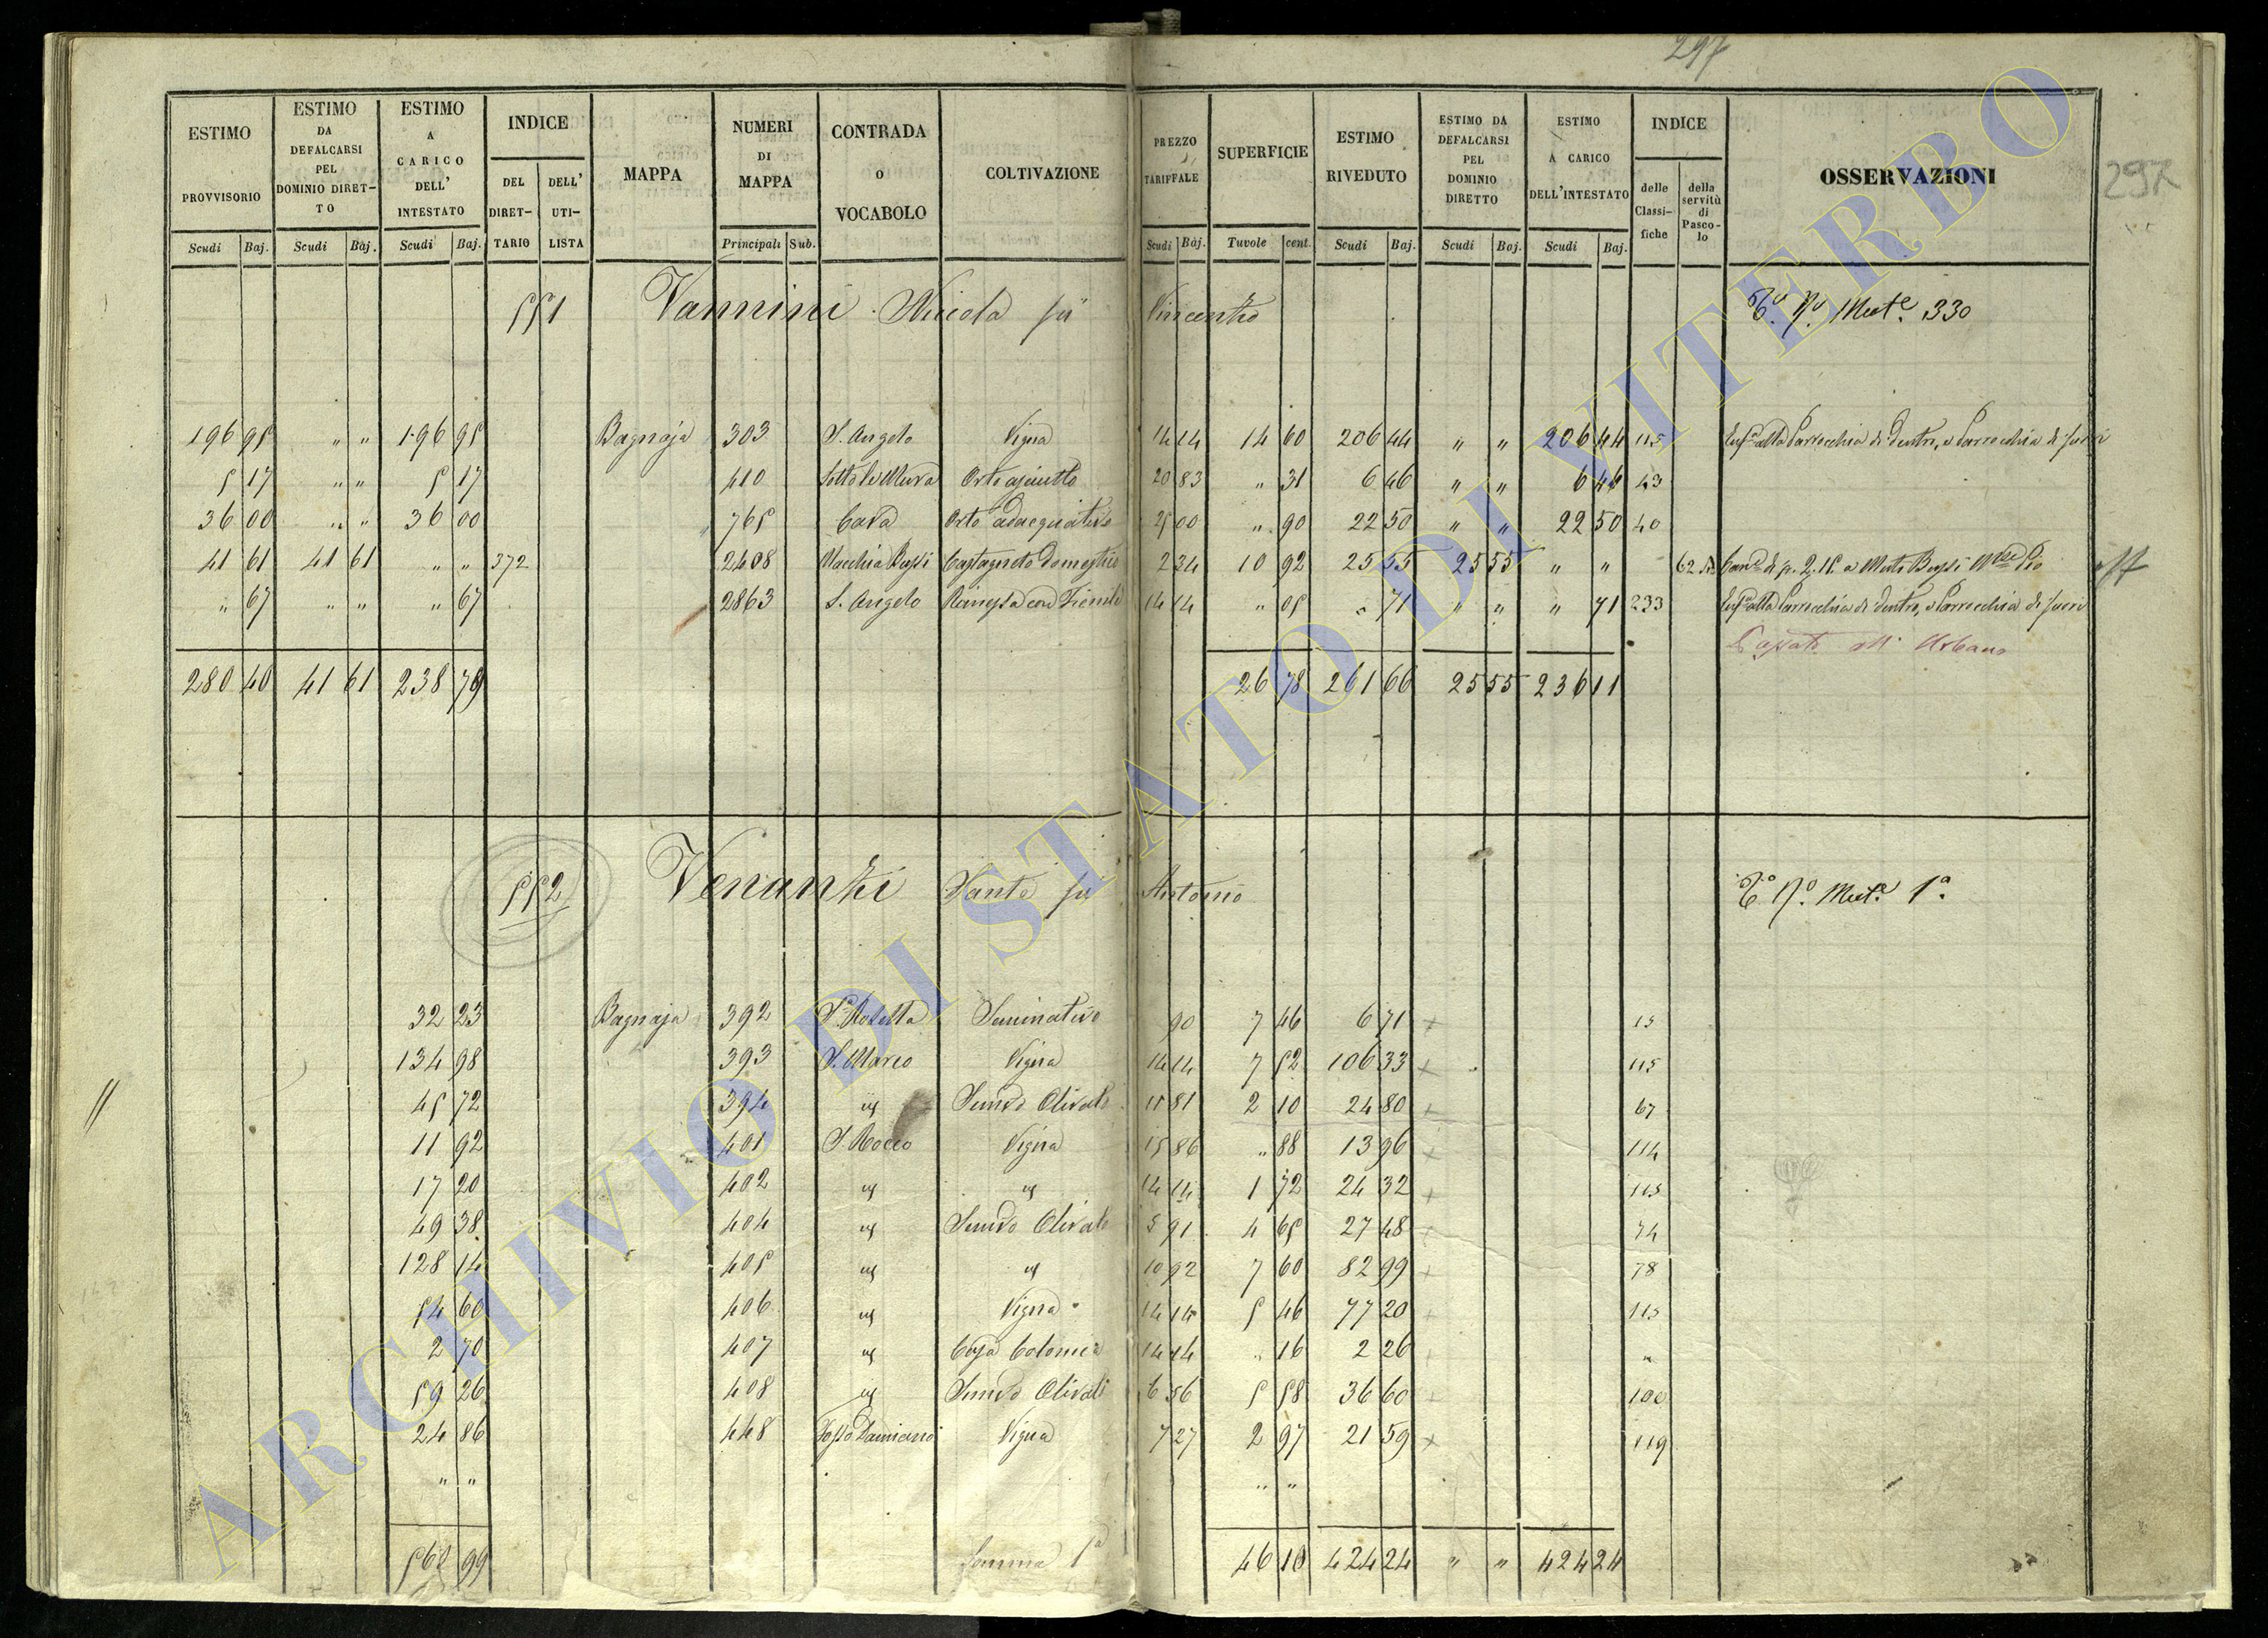 297
297
ESTIMO PROVVISORIO
ESTIMO DA DEFALCARSI PEL DOMINIO DIRETTO
ESTIMO A CARICO DELL' INTESTATO
INDICE
DEL DIRETTARIO
DELL' UTILISTA
MAPPA
NUMERI DI MAPPA
CONTRADA O VOCABOLO
COLTIVAZIONE
PREZZO TARIFFALE
SUPERFICIE
ESTIMO RIVEDUTO
ESTIMO DA DEFALCARSI PEL DOMINIO DIRETTO
ESTIMO A CARICO DELL'INTESTATO
INDICE
delle Classifiche
della servitù di Pascolo
OSSERVAZIONI
Scudi Baj. Scudi Baj. Scudi Baj. Principali Sub. Scudi Baj. Tavole cent. Scudi Baj. Scudi Baj. Scudi Baj.
551 Vannini Nicola fu Vincenzo Mut.e 330
196 95 " " 196 95 Bagnaja 303 S. Angelo Vigna 14 14 14 60 206 44 " " 206 44 115 alla Parrocchia di dentro, e Parrocchia di fuori
5 17 " " 5 17 410 Sotto le Mura Orto asciutto 20 83 " 31 6 46 " " 6 46 43
36 00 " " 36 00 765 Cava Orto adacquativo 25 00 " 90 22 50 " " 22 50 40
41 61 41 61 " " 372 2408 Macchia Bussi Castagneto domestico 2 34 10 92 25 55 25 55 " " 62
" 67 " " " 67 2863 S. Angelo 14 14 " 05 " 71 " " " 71 233 alla Parrocchia di dentro, e Parrocchia di fuori
Passato all' Urbano
280 40 41 61 238 79 26 78 261 66 25 55 236 11
552 Venanzi Sante fu Antonio Mut.e 1a
32 23 Bagnaja 392 Seminativo 90 7 46 6 71 15
134 98 393 S. Marco Vigna 14 14 7 52 106 33 115
45 72 394 id Semvo Olivato 11 81 2 10 24 80 67
11 92 401 S. Rocco Vigna 15 86 " 88 13 96 114
17 20 402 id id 14 14 1 72 24 32 115
49 38 404 id Semvo Olivato 5 91 4 65 27 48 74
128 14 405 id id 10 92 7 60 82 99 78
54 60 406 id Vigna 14 14 5 46 77 20 115
2 70 407 id Casa Colonica 14 14 " 16 2 26 "
59 26 408 id Semvo Olivato 6 56 5 58 36 60 100
24 86 448 Fosso Damiano Vigna 7 27 2 97 21 59 119
" " " "
560 99 Somma 1a 46 10 424 24 " " 424 24
ARCHIVIO DI STATO DI VITERBO